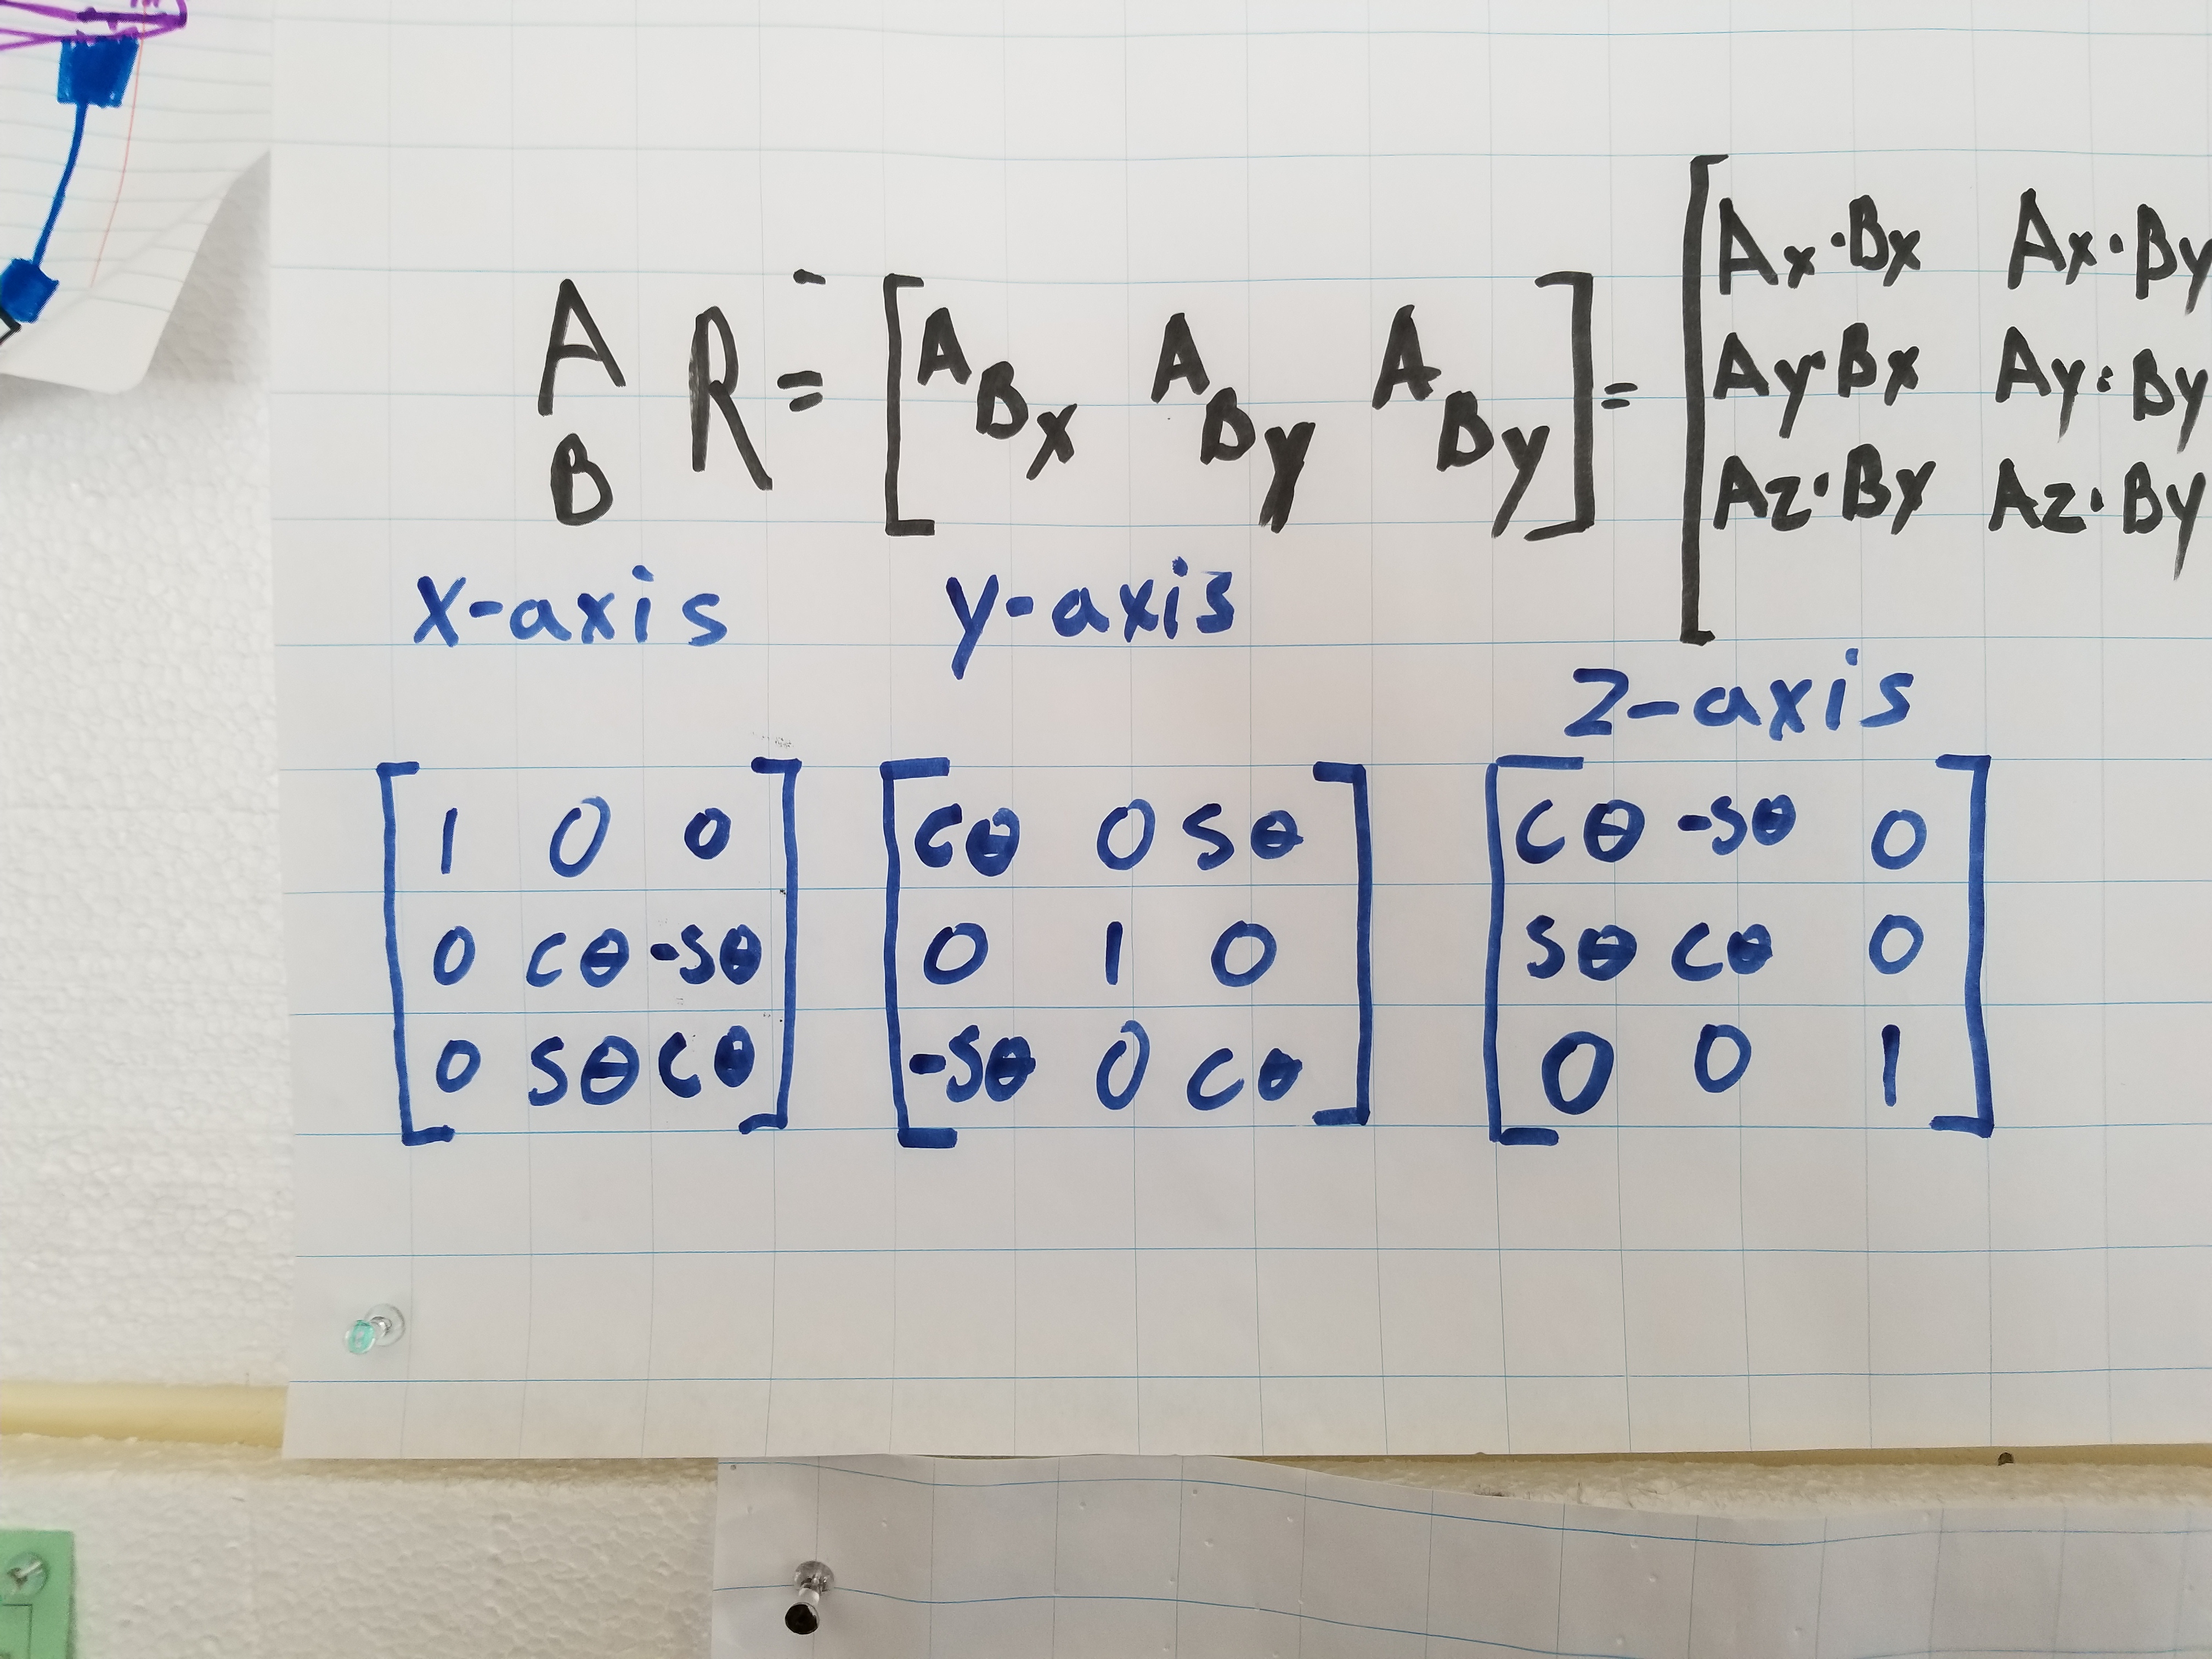 A
B R = [ A Bx A By A By ] = [ Ax·Bx Ax·By
Ay·Bx Ay·By
Az·Bx Az·By
x-axis y-axis z-axis
[ 1 0 0 ] [ cθ 0 sθ ] [ cθ -sθ 0 ]
[ 0 cθ -sθ ] [ 0 1 0 ] [ sθ cθ 0 ]
[ 0 sθ cθ ] [ -sθ 0 cθ ] [ 0 0 1 ]